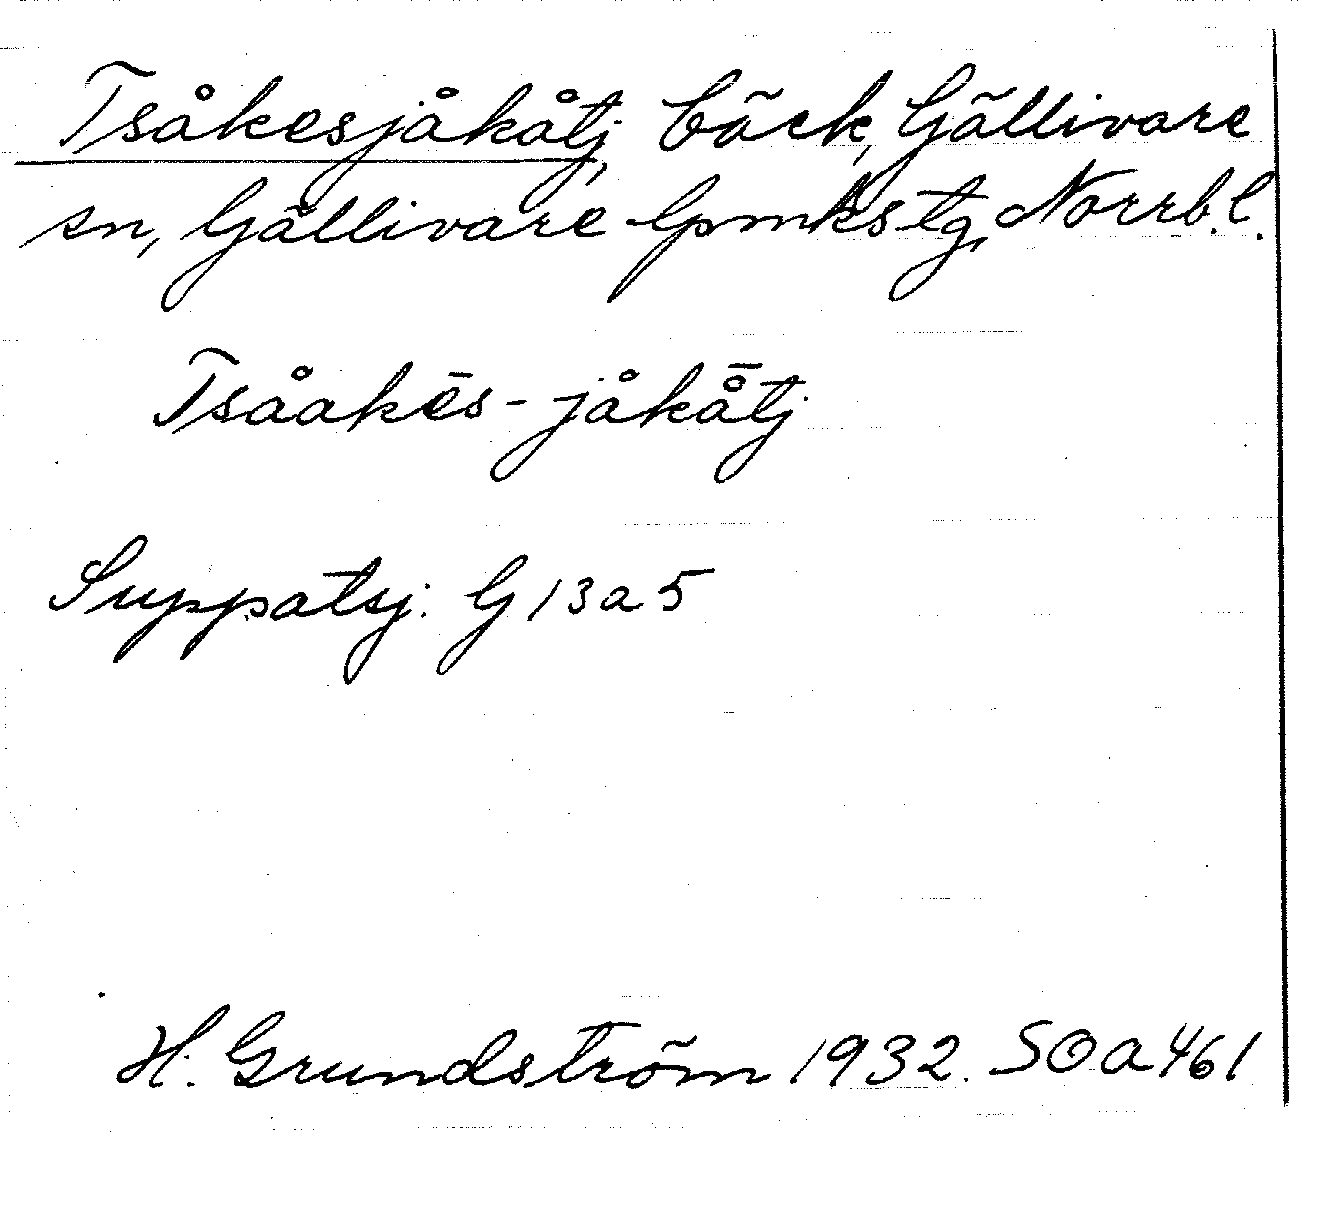 Tsåkesjåkåtj, bäck, Gällivare
sn, Gällivare lpmkstg, Norrb.l.
Tsåakēs-jåkå̄tj
Suppatsj. G 13 a 5
H. Grundström 1932. SOA 461